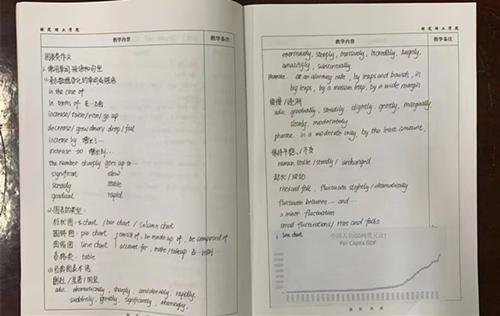 教学内容
教学备注
图表类作文
in the case of
in terms of 在…方面
increase/raise/rise/go up
decrease/grow down/drop/fall
increase by 增长了…
increase to 增长到…
the number sharply goes up to…
significant slow
steady stable
gradual rapid
2.图表的类型:
柱状图: a chart / bar chart / column chart
圆饼图: pie chart
曲线图: line chart
表格: table
consist of, be made up of, be composed of
account for, make/take up
adv. dramatically, sharply, considerably, rapidly,
suddenly, greatly, significantly, alarmingly,
教学内容
教学备注
enormously, steeply, massively, incredibly, hugely,
amazingly, substantially
phrase. at an alarming rate, by leaps and bounds, in
big leaps, by a massive leap, by a wide margin
缓慢/逐渐
adv. gradually, steadily, slightly, gently, marginally
slowly, moderately
phrase. in a moderate way, by the least amount,
保持平稳/不变
remain stable/steady/ unchanged
rise and fall, fluctuate slightly/dramatically
fluctuate between … and …
a minor fluctuation
small fluctuations/ rises and falls
line chart
Per Capita GDP